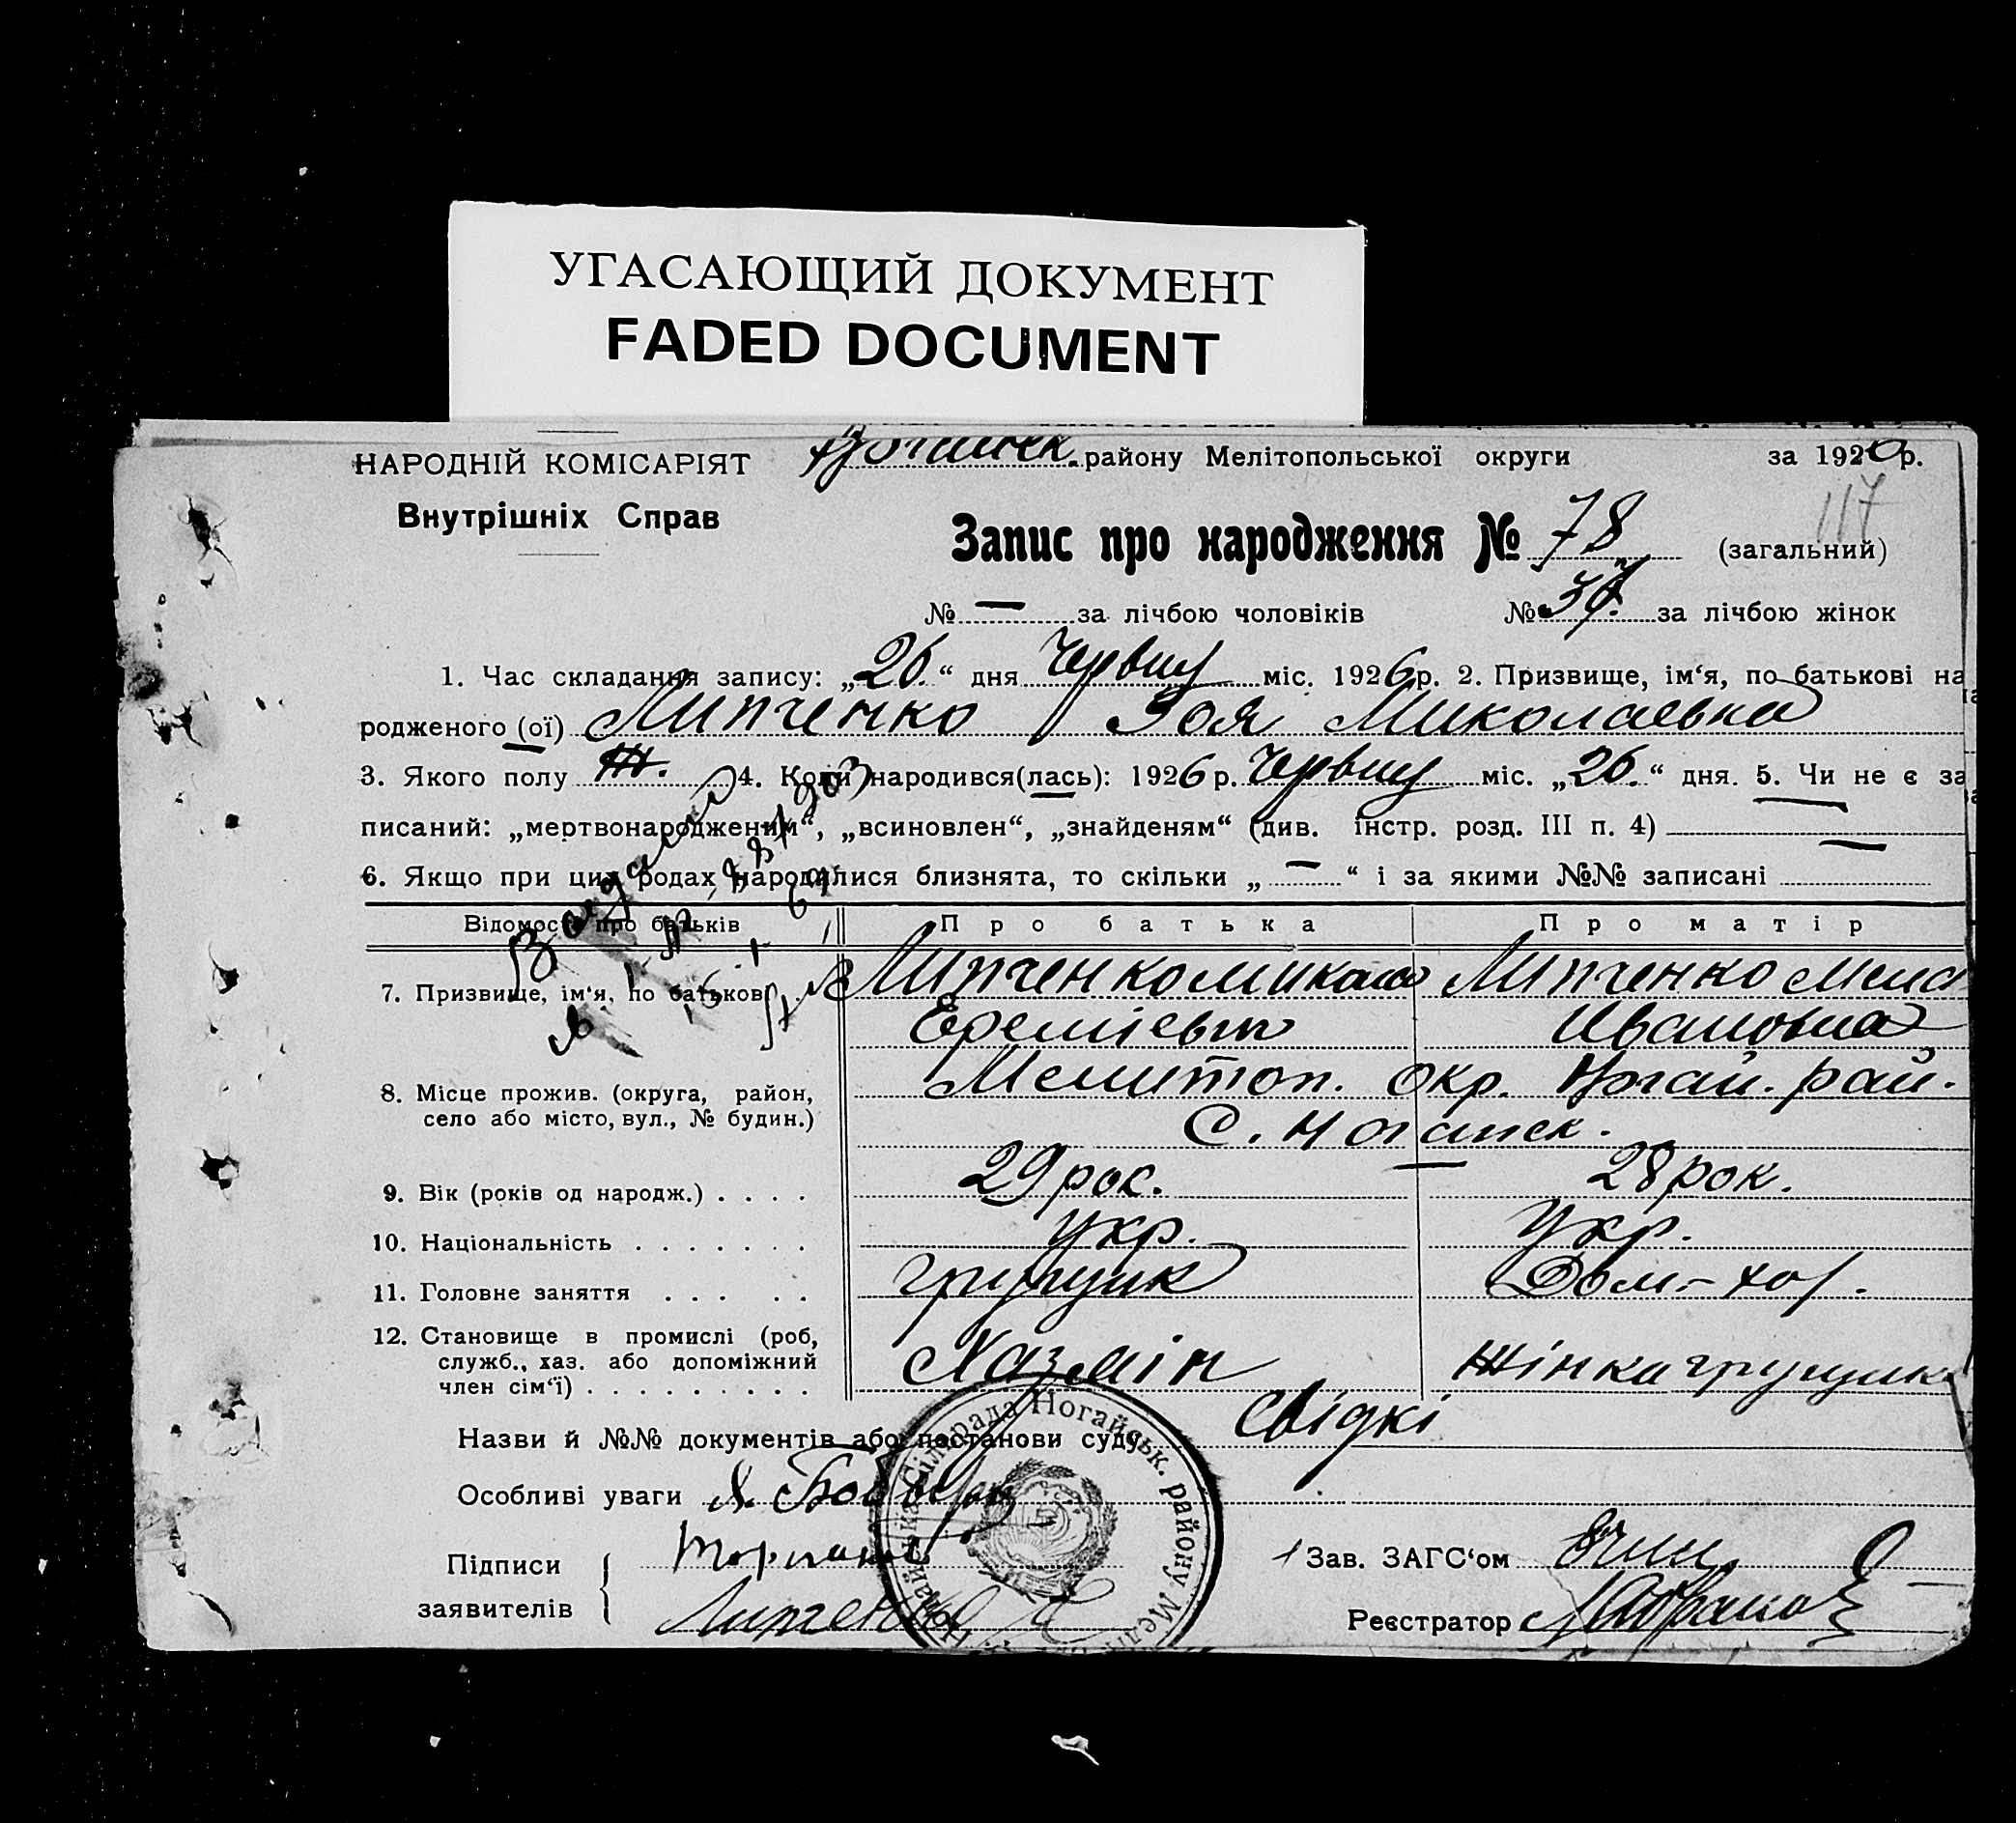 УГАСАЮЩИЙ ДОКУМЕНТ
FADED DOCUMENT
НАРОДНІЙ КОМІСАРІЯТ
Внутрішніх Справ
району Мелітопольської округи за 1926 р.
117
Запис про народження № 78 (загальний)
№ — за лічбою чоловіків № за лічбою жінок
1. Час складання запису: „26.“ дня Червня міс. 1926 р. 2. Призвище, ім‘я, по батькові на
родженого (ої) Липченко Зоя Миколаевна
3. Якого полу Ж. 4. Коли народився(лась): 1926 р. Червня міс. „26.“ дня. 5. Чи не є за
писаний: „мертвонародженим“, „всиновлен“, „знайденям“ (див. інстр. розд. III п. 4) —
6. Якщо при цих родах народилися близнята, то скільки „—“ і за якими №№ записані
Відомості про батьків Про батька Про матір
7. Призвище, ім‘я, по батькові Липченко Микола Липченко
Еремієвич Ивановна
8. Місце прожив. (округа, район, Мелитоп. окр. Ногай. рай.
село або місто, вул., № будин.) С. Ногайск.
9. Вік (років од народж.) . . . . 29 рок. 28 рок.
10. Національність . . . . . . . Укр. Укр.
11. Головне заняття . . . . . грущик Дом-хоз.
12. Становище в промислі (роб,
служб., хаз. або допоміжний
член сім‘ї) . . . . . . . . . Жінка грущика
Назви й №№ документів або постанови суду Свідкі
Особливі уваги
Підписи
заявителів Липченко
Зав. ЗАГС‘ом
Реєстратор
Ногайська Сільрада Ногайськ. району Меліт